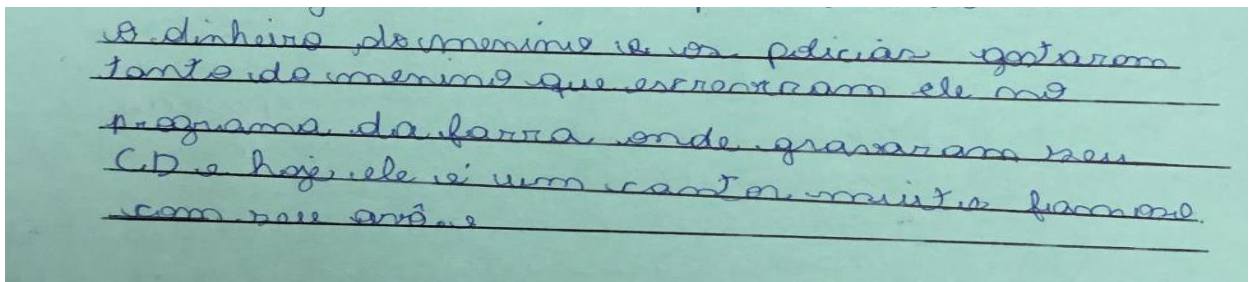 o dinheiro do menino e os policiais gostaram
tanto do menino que escreveram ele no
programa da farra onde gravaram seu
CD e hoje ele é um cantor muito famoso.
com seu avô.